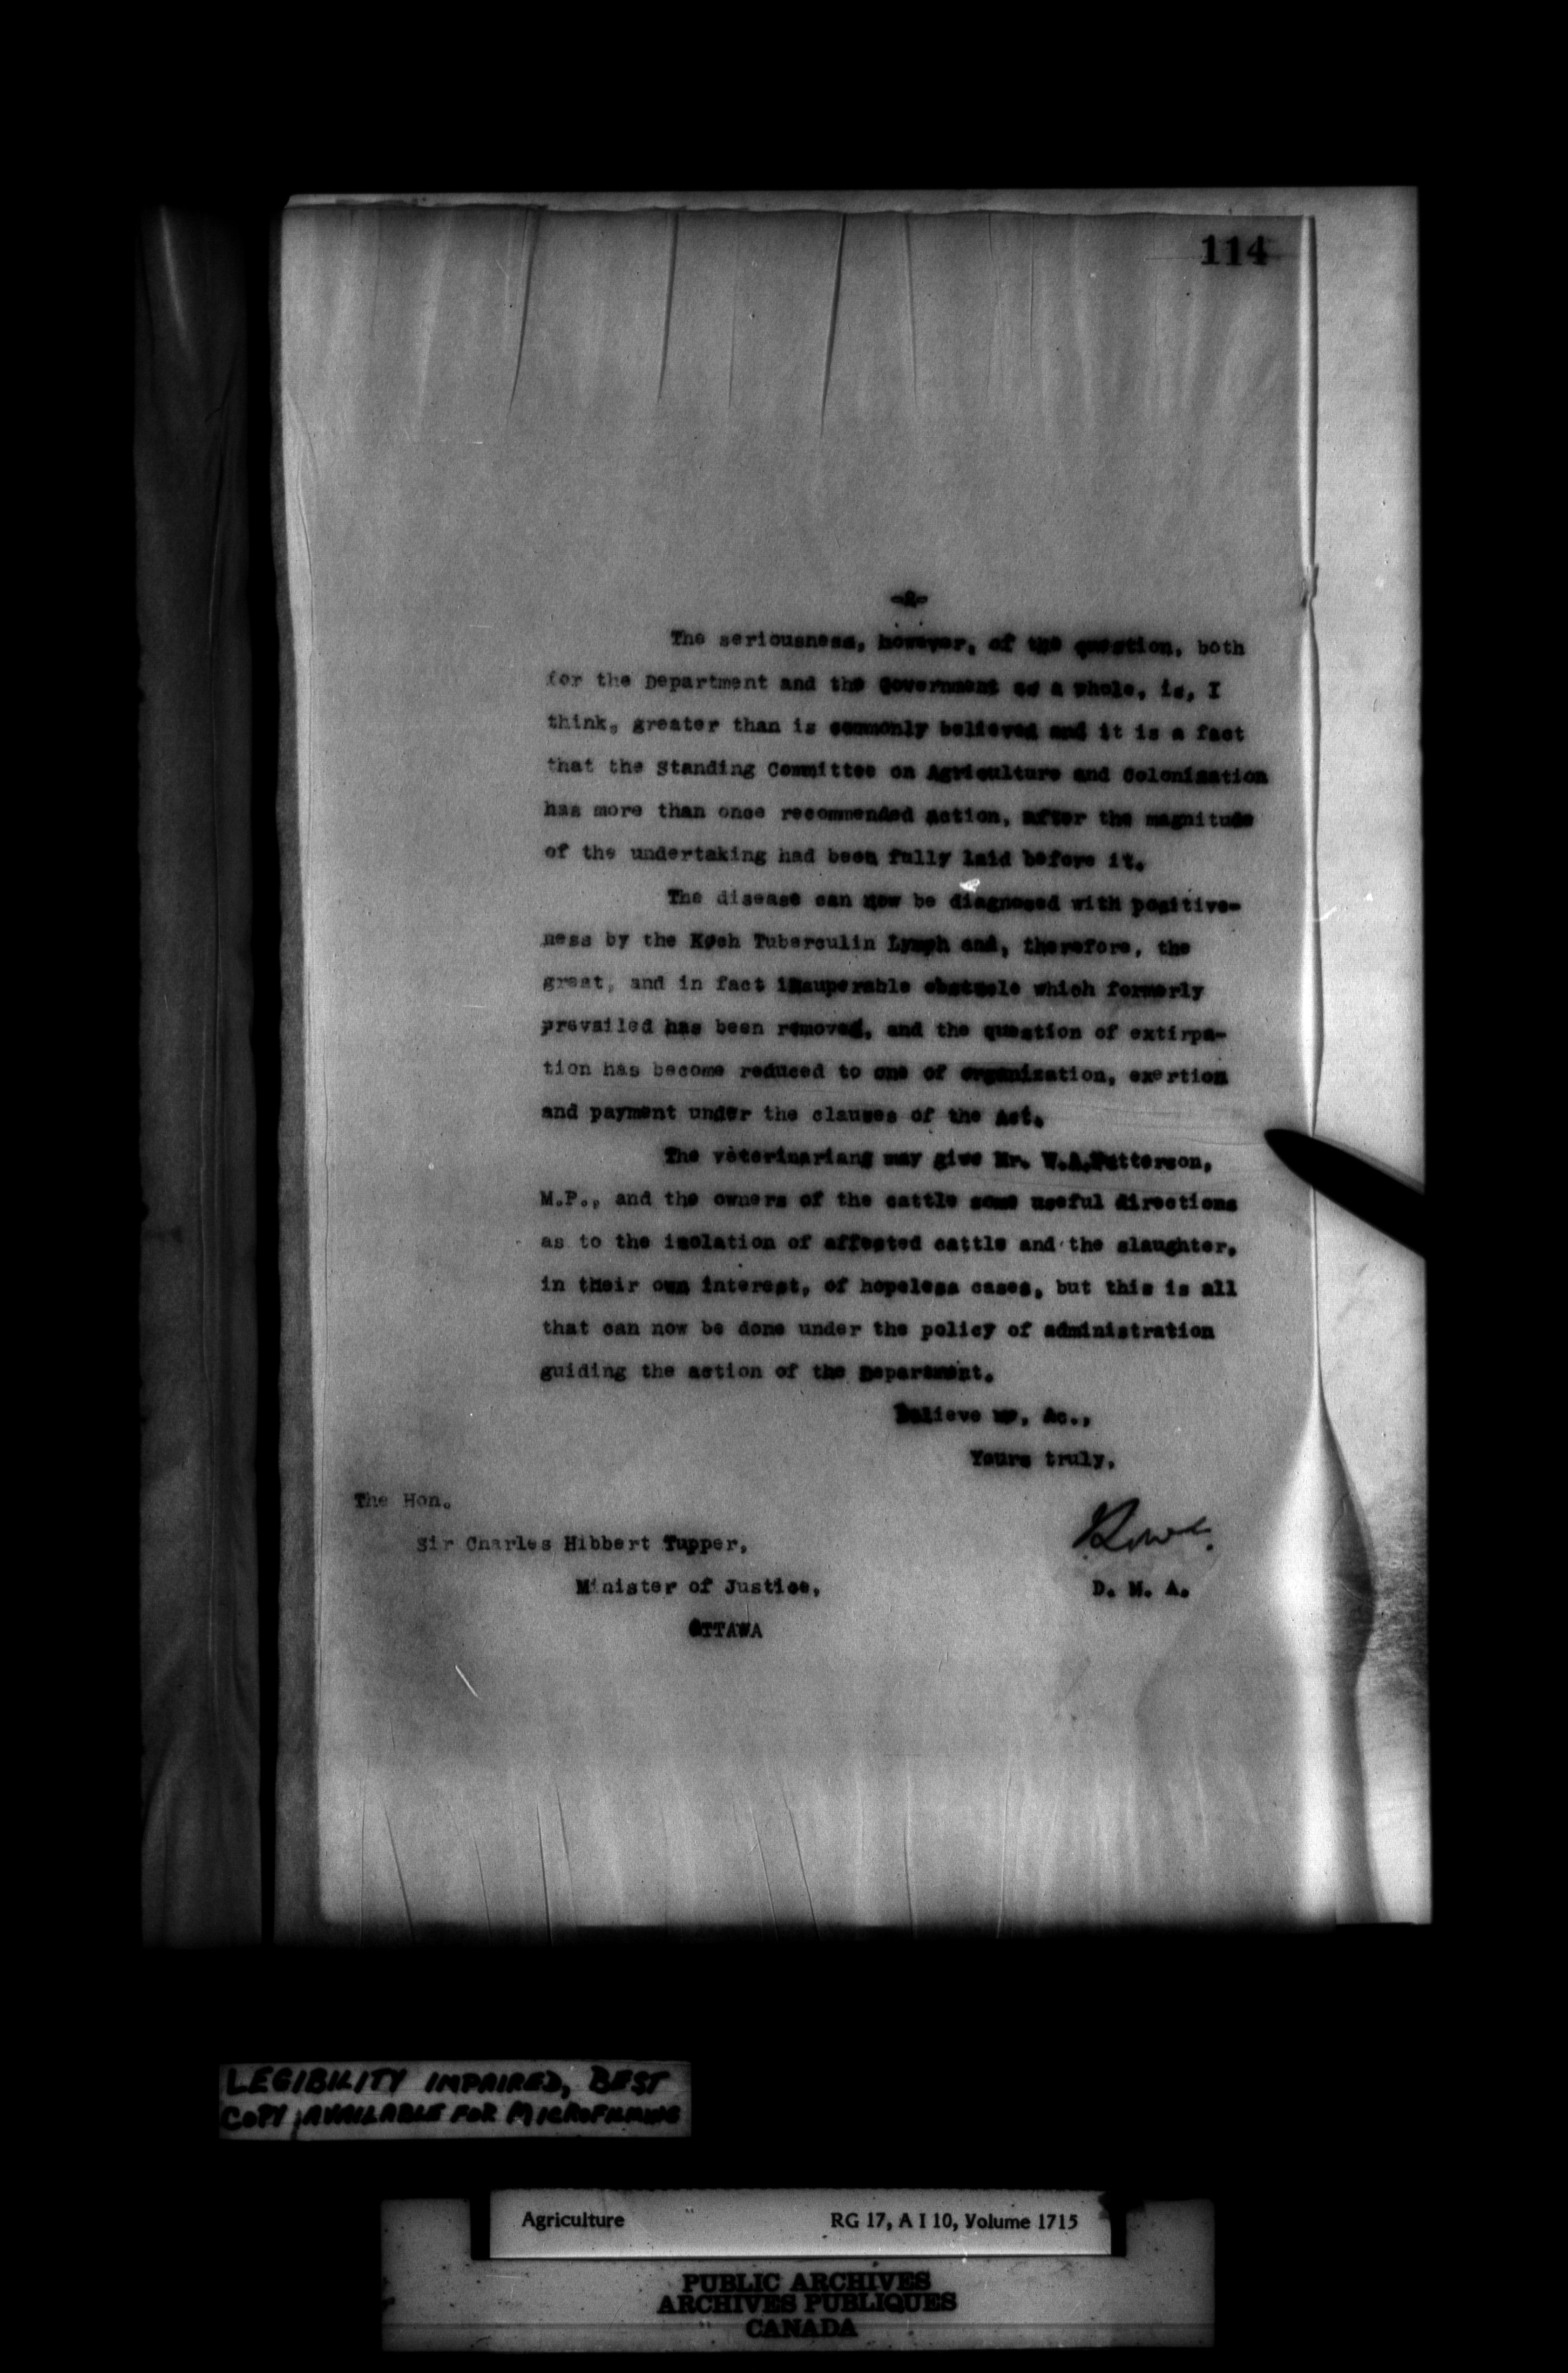 114
-2-
The seriousness, however, of the question, both
for the Department and the Government as a whole, is, I
think, greater than is commonly believed and it is a fact
that the Standing Committee on Agriculture and Colonization
has more than once recommended action, after the magnitude
of the undertaking had been fully laid before it.
The disease can now be diagnosed with positive-
ness by the Koch Tuberculin Lymph and, therefore, the
great, and in fact insuperable obstacle which formerly
prevailed has been removed, and the question of extirpa-
tion has become reduced to one of organization, exertion
and payment under the clauses of the Act.
The veterinarians may give Mr. W.A.Patterson,
M.P., and the owners of the cattle some useful directions
as to the isolation of affected cattle and the slaughter,
in their own interest, of hopeless cases, but this is all
that can now be done under the policy of administration
guiding the action of the Department.
Believe me, &c.,
Yours truly,
The Hon.
Sir Charles Hibbert Tupper,
Minister of Justice,
D. M. A.
OTTAWA
LEGIBILITY IMPAIRED, BEST
COPY AVAILABLE FOR MICROFILMING
Agriculture RG 17, A I 10, Volume 1715
PUBLIC ARCHIVES
ARCHIVES PUBLIQUES
CANADA